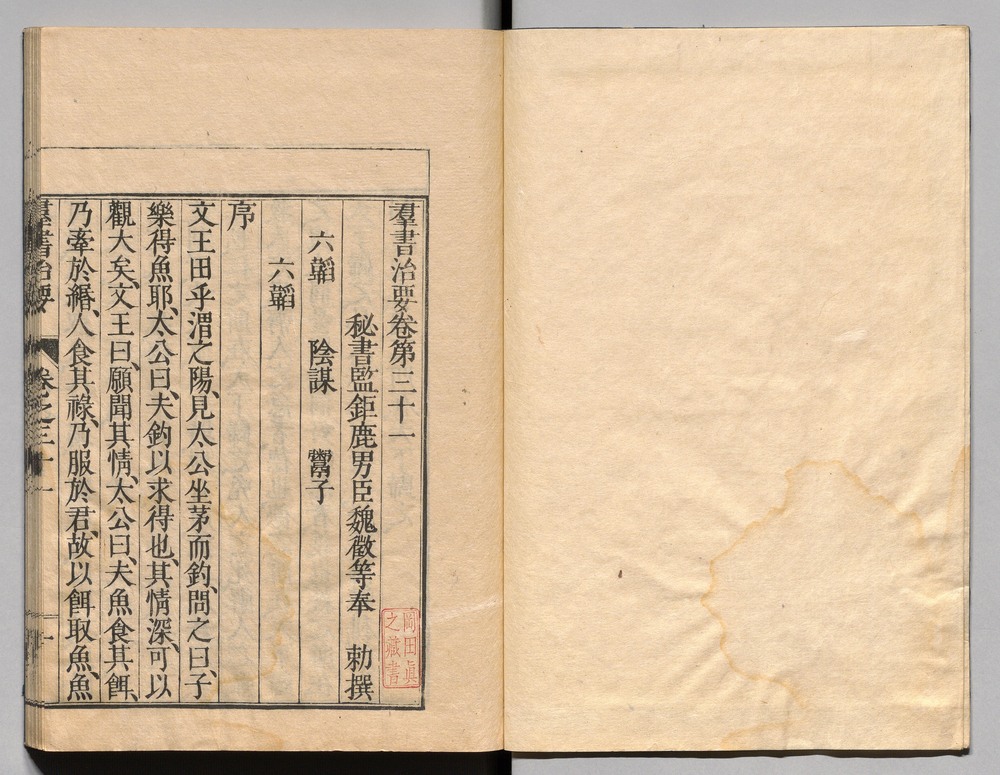 羣書治要卷第三十一
秘書監鉅鹿男臣魏徵等奉　勅撰
六韜　陰謀　鬻子
六韜
序
文王田乎渭之陽、見太公坐茅而釣、問之曰、子
樂得魚耶、太公曰、夫釣以求得也、其情深、可以
觀大矣、文王曰、願聞其情、太公曰、夫魚食其餌、
乃牽於緡、人食其祿、乃服於君、故以餌取魚、魚
羣書治要　卷之三十一　一
岡田眞
之藏書